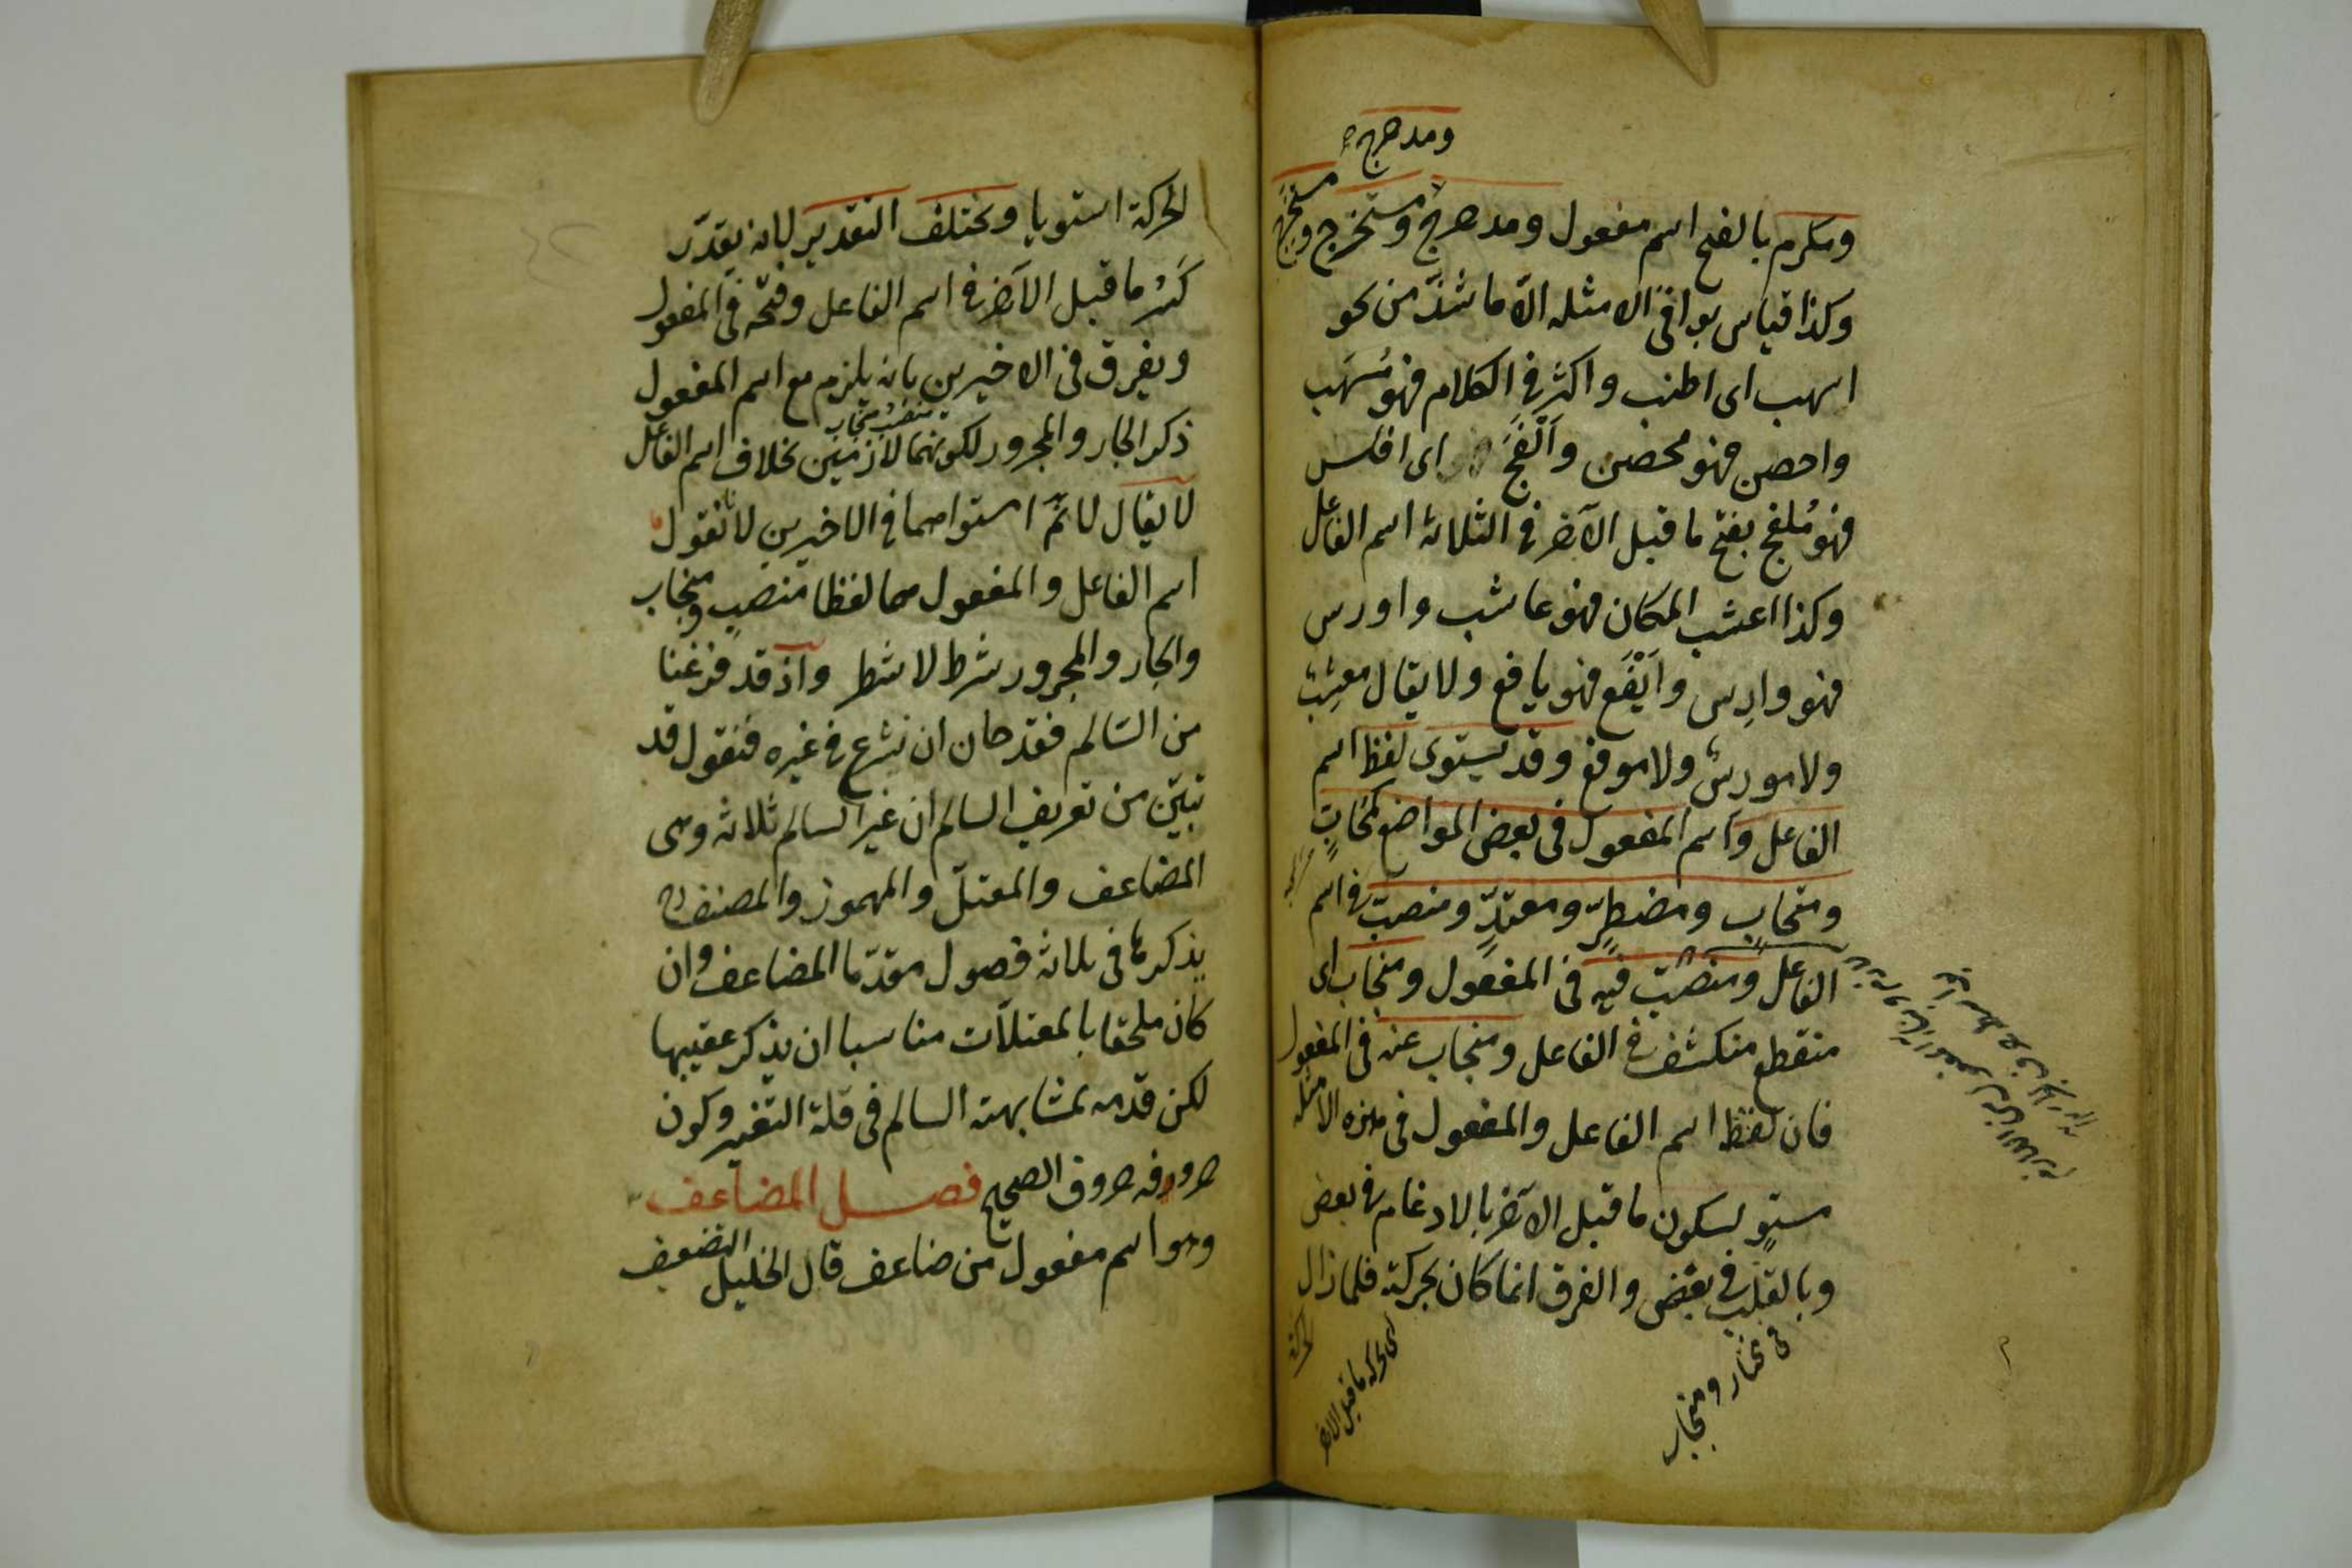 ومدحرج
ومكرم بالفتح اسم مفعول ومدحرج ومستخرج ومستخرج
وكذا قياس بواقى الامثله الّا ما شذّ من نحو
اسهب اى اطنب واكثر فى الكلام فهو مُسهَب
واحصن فهو محصن واَلْفَجَ اى افلس
فهو مُلفج بفتح ما قبل الآخر فى الثلاثة اسم الفاعل
وكذا اعشب المكان فهو عاشب واورس
فهو وارِس واَيْفَع فهو يافع ولا يقال معشِب
ولا مورس ولا موفع وقد يستوى لفظ اسم
الفاعل واسم المفعول فى بعض المواضع كمحابٍ
ومتحابٍ ومضطرٍّ ومعتدٍّ ومنصبّ فى اسم
الفاعل ومنصبّ فيه فى المفعول ومنجاب اى
منقطع منكشف فى الفاعل ومنجاب عنه فى المفعول
فان لفظ اسم الفاعل والمفعول فى هذه الامثلة
مستوٍ لسكون ما قبل الآخر بالادغام فى بعض
وبالقلب فى بعض والفرق انما كان بحركته فلما زال
فى مختار ومنجاب
اى حركة ما قبل الاخر
الحركة استويا ويختلف التقدير لانه يقدّر
كَسْرُ ما قبل الآخر فى اسم الفاعل وفتحه فى المفعول
ويفرق فى الاخيرين بانه يلزم مع اسم المفعول
منصب ومنجاب
ذكر الجار والمجرور لكونهما لازمين بخلاف اسم الفاعل
لا يقال لا نمّ استواهما فى الاخيرين لانا نقول
اسم الفاعل والمفعول هما لفظا منصب ومنجاب
والجار والمجرور شرط لا شطر واذ قد فرغنا
من السّالم فقد حان ان نشرع فى غيره فنقول قد
تبيّن من تعريف السالم ان غير السالم ثلاثة وهى
المضاعف والمعتلّ والمهموز والمصنف
يذكرها فى ثلاثة فصول مقدّما المضاعف وان
كان ملحقا بالمعتلّات مناسبا ان يذكر عقيبها
لكن قدمه لمشابهته السالم فى قلة التغير وكون
حروفه حروف الصحيح فصل المضاعف
وهو اسم مفعول من ضاعف قال الخليل التضعيف